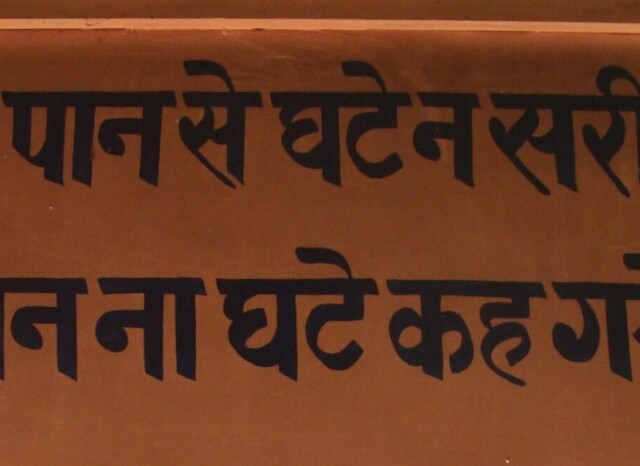 पान से घटे न सरी
न ना घटे कह ग